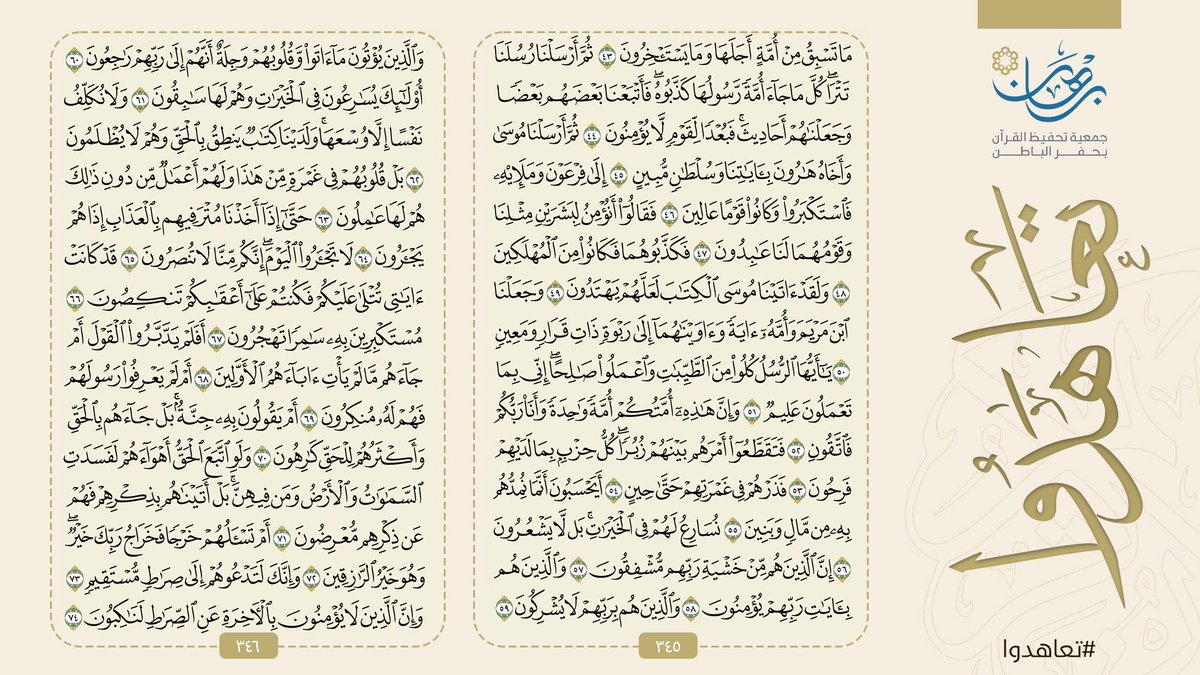 مَا تَسْبِقُ مِنْ أُمَّةٍ أَجَلَهَا وَمَا يَسْتَـْٔخِرُونَ ٤٣ ثُمَّ أَرْسَلْنَا رُسُلَنَا
تَتْرَا ۖ كُلَّ مَا جَآءَ أُمَّةً رَّسُولُهَا كَذَّبُوهُ ۚ فَأَتْبَعْنَا بَعْضَهُم بَعْضًا
وَجَعَلْنَٰهُمْ أَحَادِيثَ ۚ فَبُعْدًا لِّقَوْمٍ لَّا يُؤْمِنُونَ ٤٤ ثُمَّ أَرْسَلْنَا مُوسَىٰ
وَأَخَاهُ هَٰرُونَ بِـَٔايَٰتِنَا وَسُلْطَٰنٍ مُّبِينٍ ٤٥ إِلَىٰ فِرْعَوْنَ وَمَلَإِي۟هِ
فَٱسْتَكْبَرُوا۟ وَكَانُوا۟ قَوْمًا عَالِينَ ٤٦ فَقَالُوٓا۟ أَنُؤْمِنُ لِبَشَرَيْنِ مِثْلِنَا
وَقَوْمُهُمَا لَنَا عَٰبِدُونَ ٤٧ فَكَذَّبُوهُمَا فَكَانُوا۟ مِنَ ٱلْمُهْلَكِينَ
٤٨ وَلَقَدْ ءَاتَيْنَا مُوسَى ٱلْكِتَٰبَ لَعَلَّهُمْ يَهْتَدُونَ ٤٩ وَجَعَلْنَا
ٱبْنَ مَرْيَمَ وَأُمَّهُۥٓ ءَايَةً وَءَاوَيْنَٰهُمَآ إِلَىٰ رَبْوَةٍ ذَاتِ قَرَارٍ وَمَعِينٍ
٥٠ يَٰٓأَيُّهَا ٱلرُّسُلُ كُلُوا۟ مِنَ ٱلطَّيِّبَٰتِ وَٱعْمَلُوا۟ صَٰلِحًا ۖ إِنِّى بِمَا
تَعْمَلُونَ عَلِيمٌ ٥١ وَإِنَّ هَٰذِهِۦٓ أُمَّتُكُمْ أُمَّةً وَٰحِدَةً وَأَنَا۠ رَبُّكُمْ
فَٱتَّقُونِ ٥٢ فَتَقَطَّعُوٓا۟ أَمْرَهُم بَيْنَهُمْ زُبُرًا ۖ كُلُّ حِزْبٍۭ بِمَا لَدَيْهِمْ
فَرِحُونَ ٥٣ فَذَرْهُمْ فِى غَمْرَتِهِمْ حَتَّىٰ حِينٍ ٥٤ أَيَحْسَبُونَ أَنَّمَا نُمِدُّهُم
بِهِۦ مِن مَّالٍ وَبَنِينَ ٥٥ نُسَارِعُ لَهُمْ فِى ٱلْخَيْرَٰتِ ۚ بَل لَّا يَشْعُرُونَ
٥٦ إِنَّ ٱلَّذِينَ هُم مِّنْ خَشْيَةِ رَبِّهِم مُّشْفِقُونَ ٥٧ وَٱلَّذِينَ هُم
بِـَٔايَٰتِ رَبِّهِمْ يُؤْمِنُونَ ٥٨ وَٱلَّذِينَ هُم بِرَبِّهِمْ لَا يُشْرِكُونَ ٥٩
٣٤٥
وَٱلَّذِينَ يُؤْتُونَ مَآ ءَاتَوا۟ وَّقُلُوبُهُمْ وَجِلَةٌ أَنَّهُمْ إِلَىٰ رَبِّهِمْ رَٰجِعُونَ ٦٠
أُو۟لَٰٓئِكَ يُسَٰرِعُونَ فِى ٱلْخَيْرَٰتِ وَهُمْ لَهَا سَٰبِقُونَ ٦١ وَلَا نُكَلِّفُ
نَفْسًا إِلَّا وُسْعَهَا ۖ وَلَدَيْنَا كِتَٰبٌ يَنطِقُ بِٱلْحَقِّ ۚ وَهُمْ لَا يُظْلَمُونَ
٦٢ بَلْ قُلُوبُهُمْ فِى غَمْرَةٍ مِّنْ هَٰذَا وَلَهُمْ أَعْمَٰلٌ مِّن دُونِ ذَٰلِكَ
هُمْ لَهَا عَٰمِلُونَ ٦٣ حَتَّىٰٓ إِذَآ أَخَذْنَا مُتْرَفِيهِم بِٱلْعَذَابِ إِذَا هُمْ
يَجْـَٔرُونَ ٦٤ لَا تَجْـَٔرُوا۟ ٱلْيَوْمَ ۖ إِنَّكُم مِّنَّا لَا تُنصَرُونَ ٦٥ قَدْ كَانَتْ
ءَايَٰتِى تُتْلَىٰ عَلَيْكُمْ فَكُنتُمْ عَلَىٰٓ أَعْقَٰبِكُمْ تَنكِصُونَ ٦٦
مُسْتَكْبِرِينَ بِهِۦ سَٰمِرًا تَهْجُرُونَ ٦٧ أَفَلَمْ يَدَّبَّرُوا۟ ٱلْقَوْلَ أَمْ
جَآءَهُم مَّا لَمْ يَأْتِ ءَابَآءَهُمُ ٱلْأَوَّلِينَ ٦٨ أَمْ لَمْ يَعْرِفُوا۟ رَسُولَهُمْ
فَهُمْ لَهُۥ مُنكِرُونَ ٦٩ أَمْ يَقُولُونَ بِهِۦ جِنَّةٌۢ ۚ بَلْ جَآءَهُم بِٱلْحَقِّ
وَأَكْثَرُهُمْ لِلْحَقِّ كَٰرِهُونَ ٧٠ وَلَوِ ٱتَّبَعَ ٱلْحَقُّ أَهْوَآءَهُمْ لَفَسَدَتِ
ٱلسَّمَٰوَٰتُ وَٱلْأَرْضُ وَمَن فِيهِنَّ ۚ بَلْ أَتَيْنَٰهُم بِذِكْرِهِمْ فَهُمْ
عَن ذِكْرِهِم مُّعْرِضُونَ ٧١ أَمْ تَسْـَٔلُهُمْ خَرْجًا فَخَرَاجُ رَبِّكَ خَيْرٌ ۖ
وَهُوَ خَيْرُ ٱلرَّٰزِقِينَ ٧٢ وَإِنَّكَ لَتَدْعُوهُمْ إِلَىٰ صِرَٰطٍ مُّسْتَقِيمٍ ٧٣
وَإِنَّ ٱلَّذِينَ لَا يُؤْمِنُونَ بِٱلْأٓخِرَةِ عَنِ ٱلصِّرَٰطِ لَنَٰكِبُونَ ٧٤
٣٤٦
برهان
جمعية تحفيظ القرآن
بحفر الباطن
تعاهدوا
#تعاهدوا